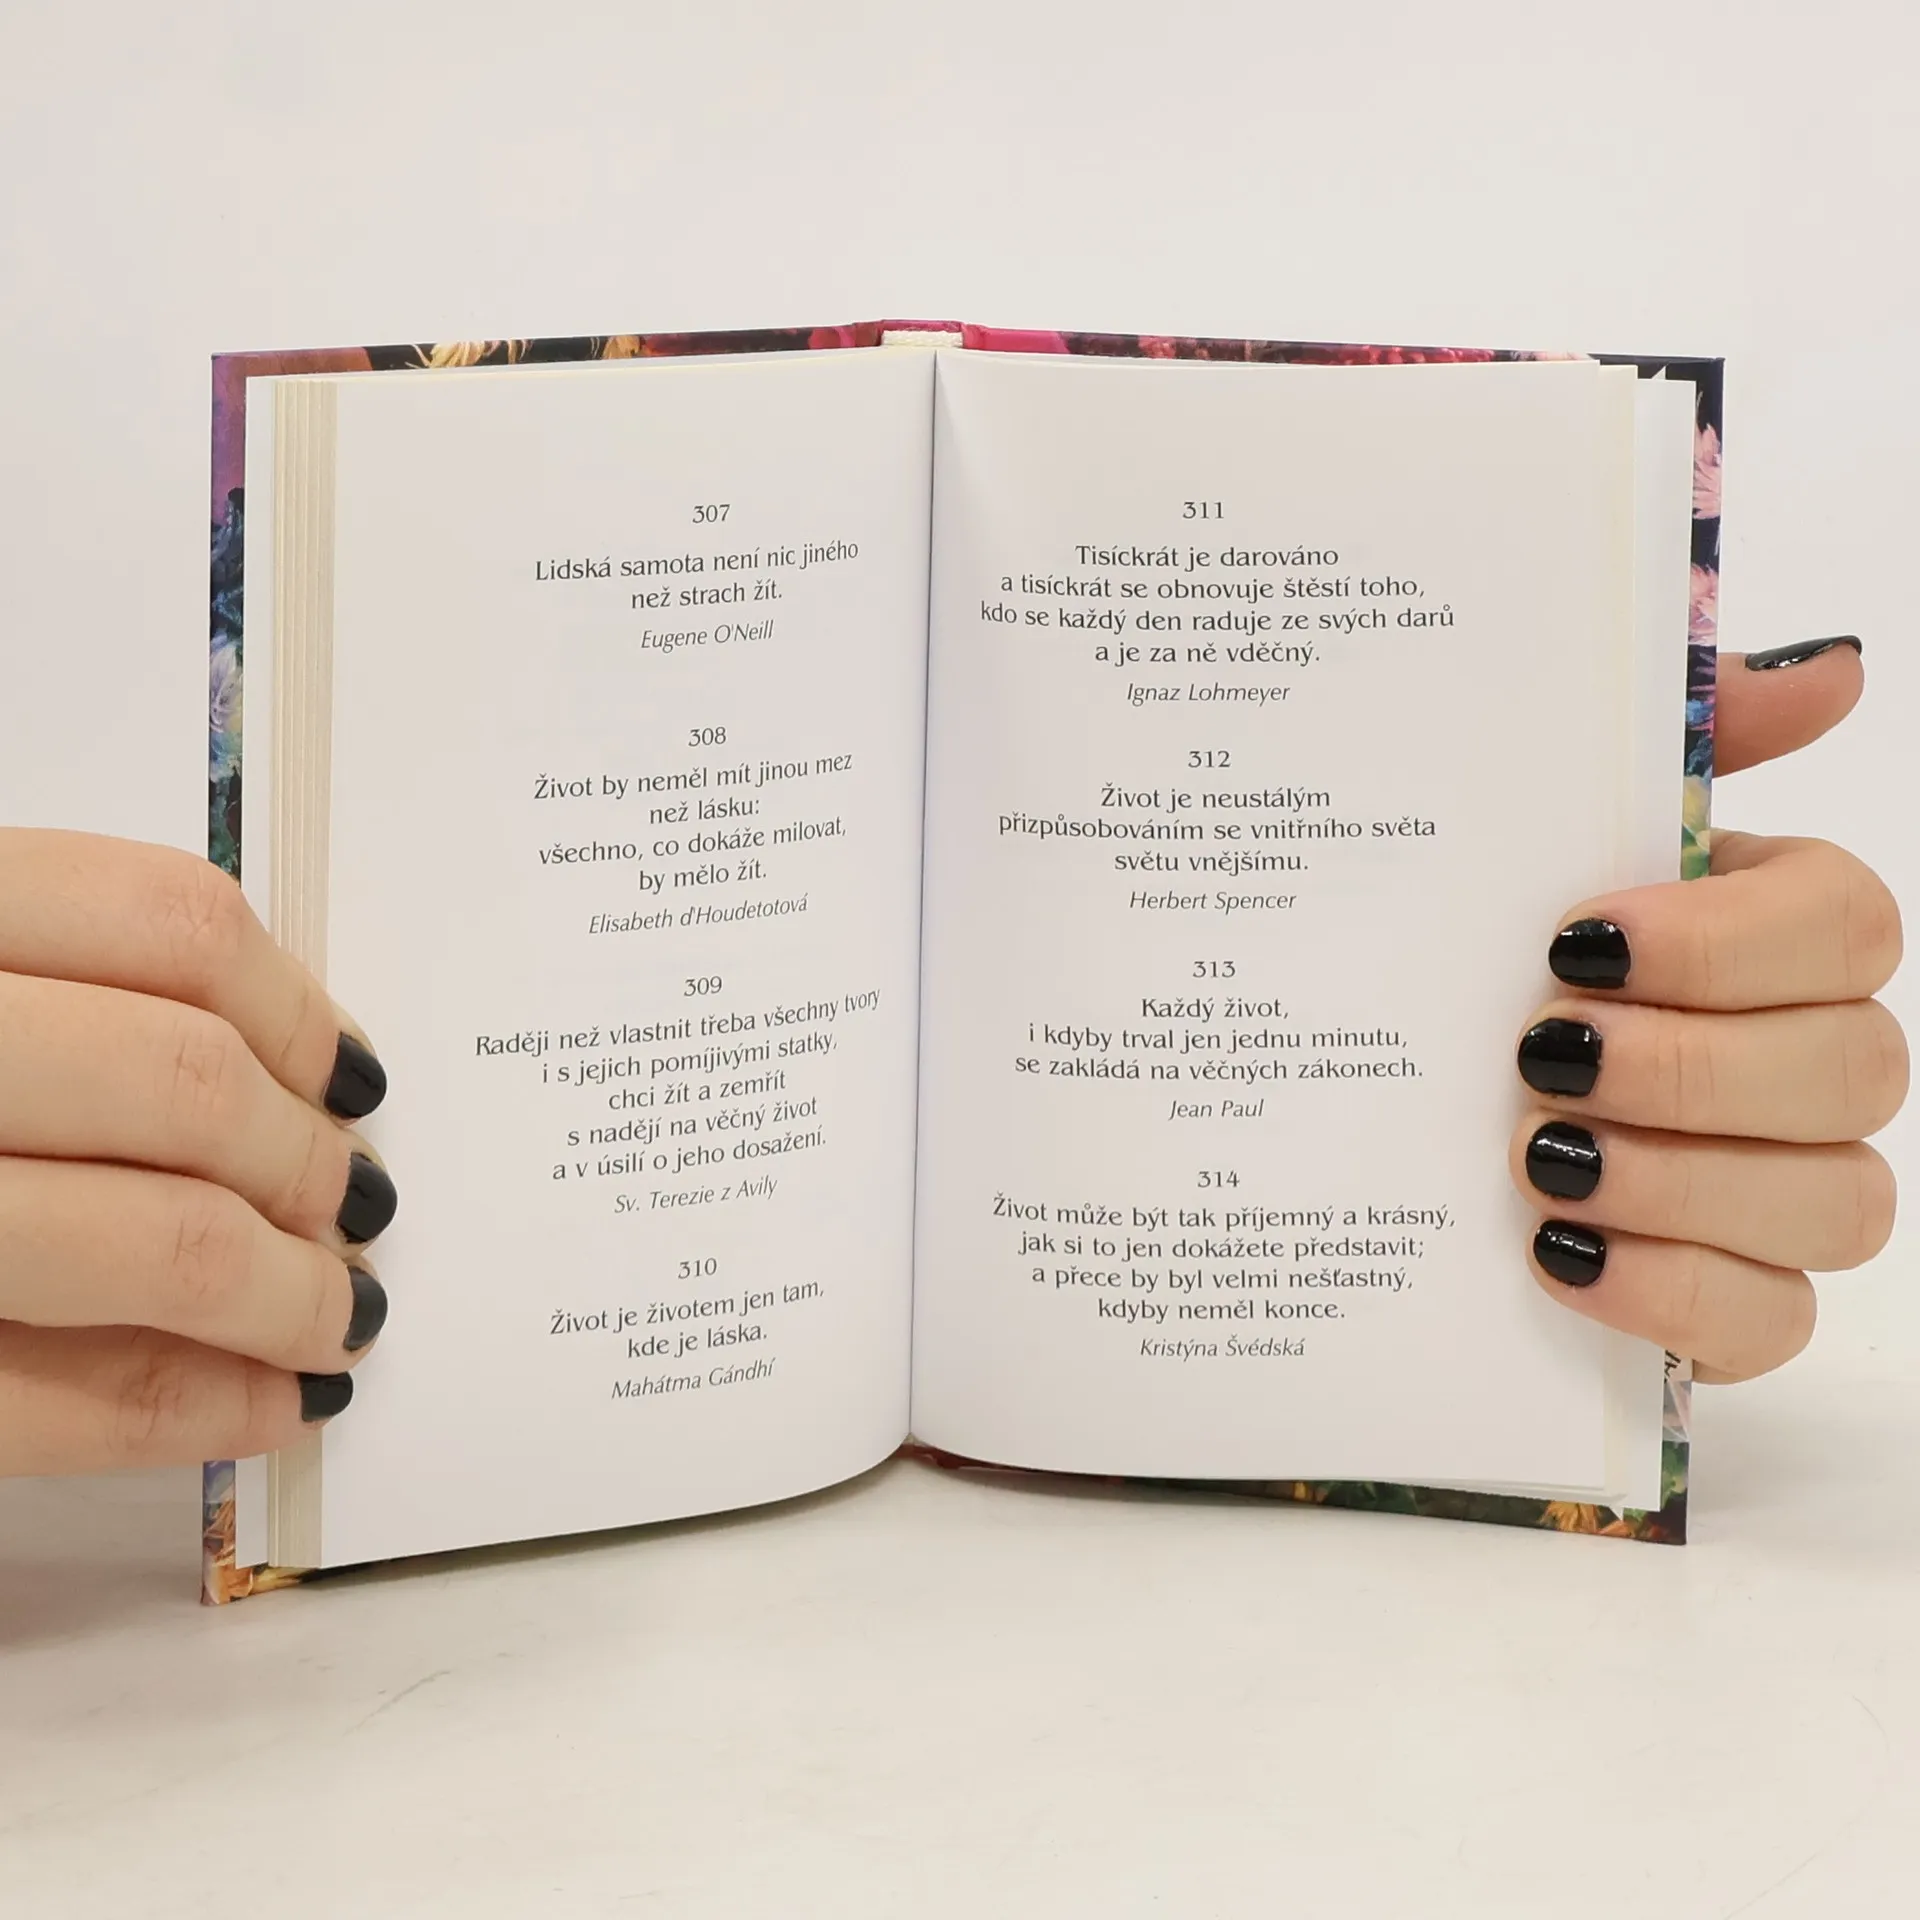 307
Lidská samota není nic jiného
než strach žít.
Eugene O'Neill
308
Život by neměl mít jinou mez
než lásku:
všechno, co dokáže milovat,
by mělo žít.
Elisabeth d'Houdetotová
309
Raději než vlastnit třeba všechny tvory
i s jejich pomíjivými statky,
chci žít a zemřít
s nadějí na věčný život
a v úsilí o jeho dosažení.
Sv. Terezie z Avily
310
Život je životem jen tam,
kde je láska.
Mahátma Gándhí
311
Tisíckrát je darováno
a tisíckrát se obnovuje štěstí toho,
kdo se každý den raduje ze svých darů
a je za ně vděčný.
Ignaz Lohmeyer
312
Život je neustálým
přizpůsobováním se vnitřního světa
světu vnějšímu.
Herbert Spencer
313
Každý život,
i kdyby trval jen jednu minutu,
se zakládá na věčných zákonech.
Jean Paul
314
Život může být tak příjemný a krásný,
jak si to jen dokážete představit;
a přece by byl velmi nešťastný,
kdyby neměl konce.
Kristýna Švédská